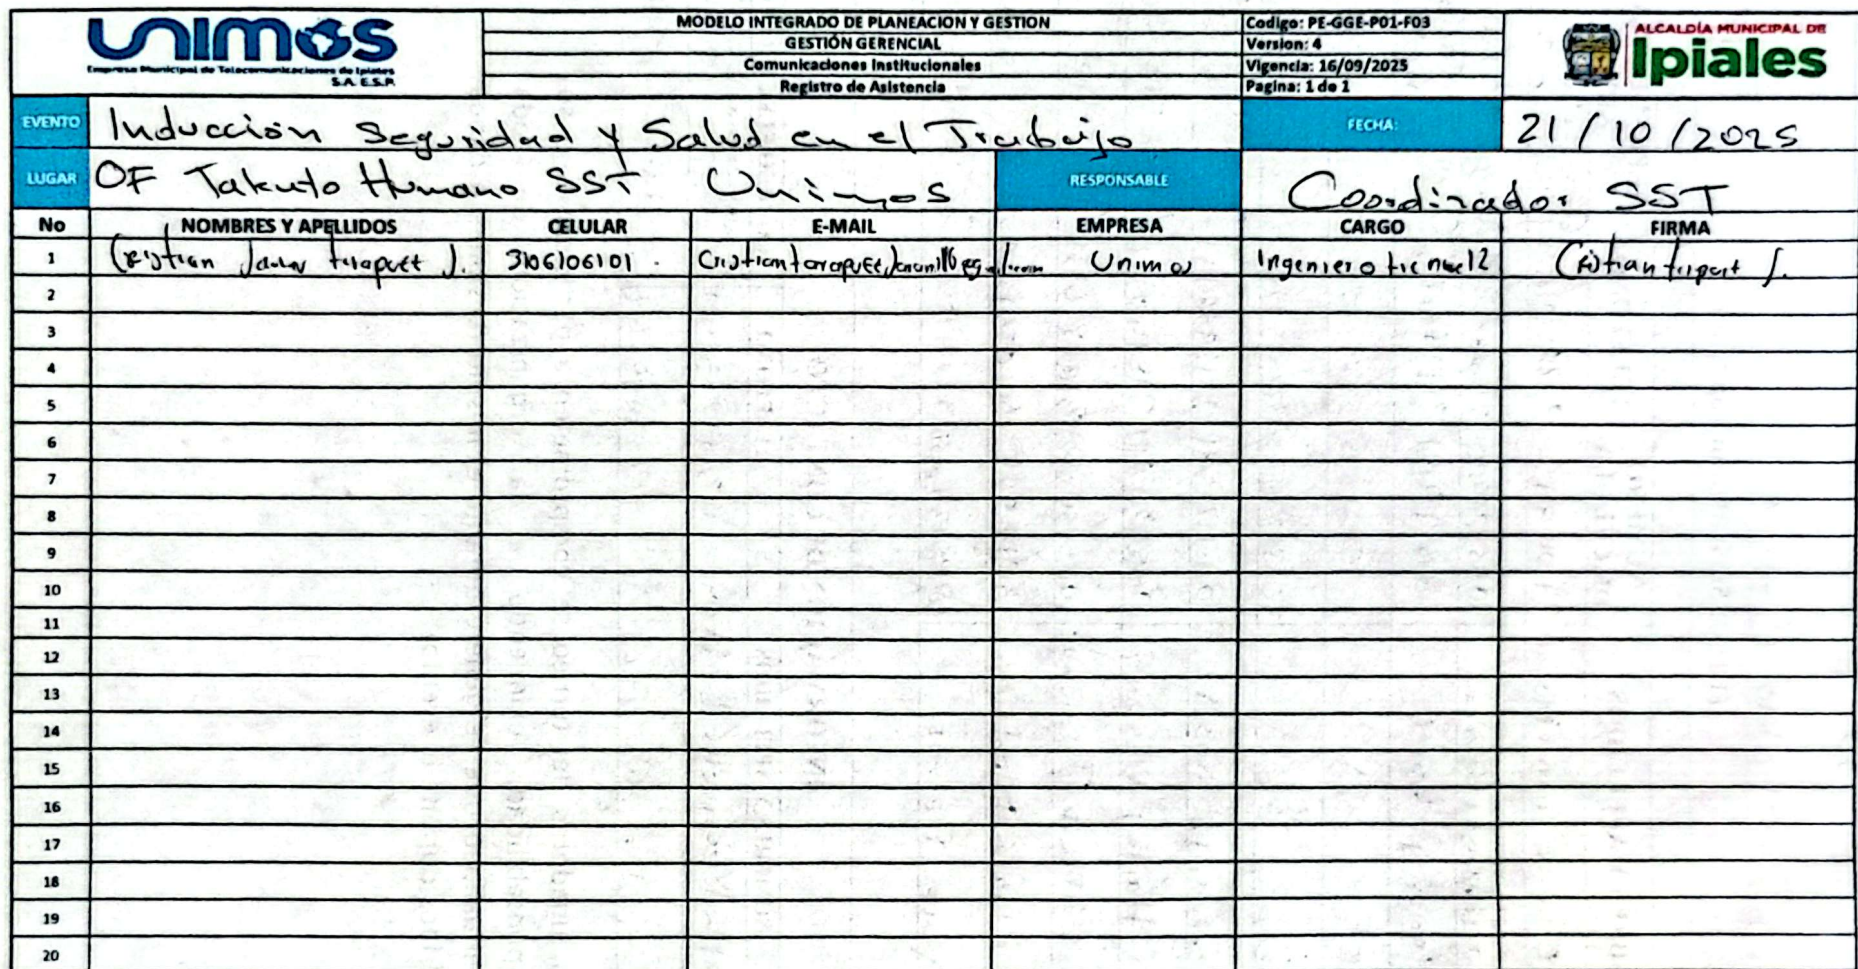 UNIMOS
Empresa Municipal de Telecomunicaciones de Ipiales
S.A. E.S.P.
MODELO INTEGRADO DE PLANEACION Y GESTION
GESTIÓN GERENCIAL
Comunicaciones Institucionales
Registro de Asistencia
Codigo: PE-GGE-P01-F03
Version: 4
Vigencia: 16/09/2025
Pagina: 1 de 1
ALCALDÍA MUNICIPAL DE
Ipiales
EVENTO Inducción Seguridad y Salud en el Trabajo FECHA: 21/10/2025
LUGAR OF Talento Humano SST Unimos RESPONSABLE Coordinador SST
No NOMBRES Y APELLIDOS CELULAR E-MAIL EMPRESA CARGO FIRMA
1 Cristian J. 3106106101 Unimos Ingeniero Cristian J.
2
3
4
5
6
7
8
9
10
11
12
13
14
15
16
17
18
19
20